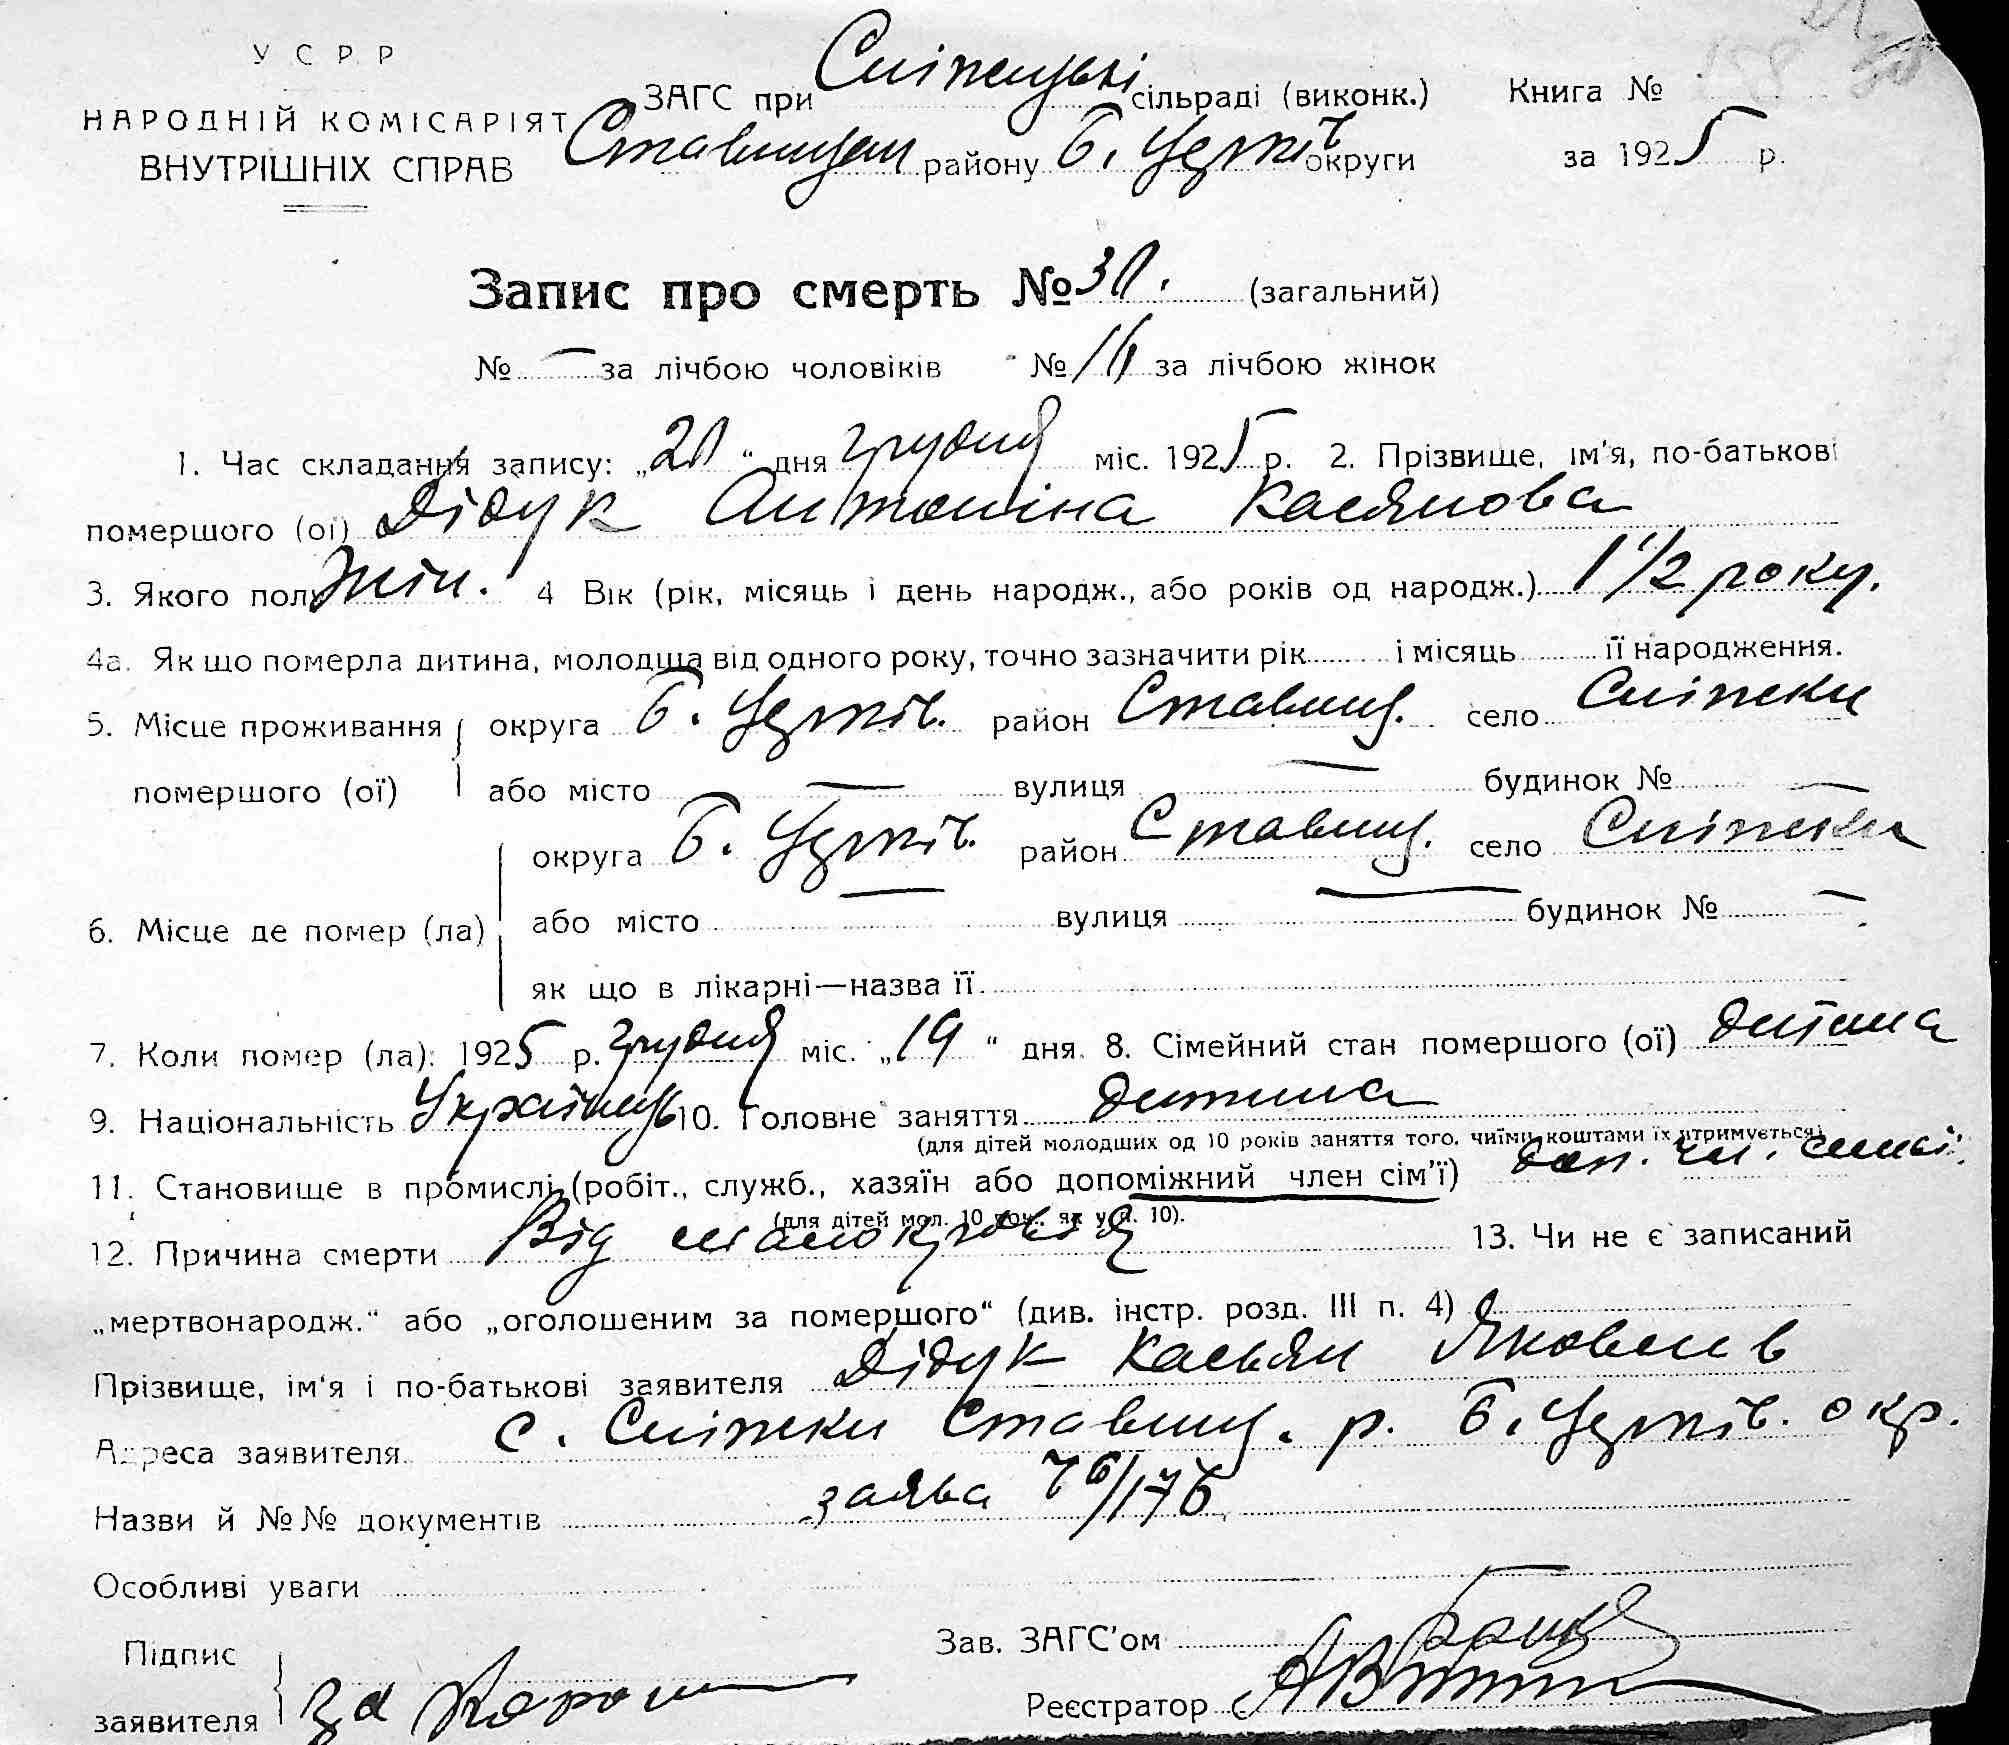 У С Р Р
НАРОДНІЙ КОМІСАРІЯТ
ВНУТРІШНІХ СПРАВ
ЗАГС при сільраді (виконк.) Книга №
району Б. Церків округи за 1925 р.
Запис про смерть № 30. (загальний)
№ — за лічбою чоловіків № за лічбою жінок
1. Час складання запису: „20“ дня грудня міс. 1925 р. 2. Прізвище, ім'я, по-батькові
помершого (ої) Дідук Антоніна Касянова
3. Якого полу Жін. 4 Вік (рік, місяць і день народж., або років од народж.) 1 1/2 року.
4а. Як що померла дитина, молодща від одного року, точно зазначити рік і місяць її народження.
5. Місце проживання округа Б. Церків. район Ставищ. село Сніжки
помершого (ої) або місто — вулиця — будинок № —
округа Б. Церків. район Ставищ. село Сніжки
6. Місце де помер (ла) або місто — вулиця — будинок № —
як що в лікарні—назва її
7. Коли помер (ла): 1925 р. грудня міс. „19“ дня 8. Сімейний стан помершого (ої) дитина
9. Національність 10. Головне заняття дитина
(для дітей молодших од 10 років заняття того, чиїми коштами їх утримується)
11. Становище в промислі (робіт., служб., хазяїн або допоміжний член сім'ї) доп. чл. сімьї.
(для дітей мол. 10 роч. як у п. 10).
12. Причина смерти Від малокровія 13. Чи не є записаний
„мертвонародж.“ або „оголошеним за помершого“ (див. інстр. розд. III п. 4)
Прізвище, ім'я і по-батькові заявителя Дідук Касьян Яковлів
Адреса заявителя с. Сніжки Ставищ. р. Б. Церків. окр.
Назви й №№ документів заява
Особливі уваги
Підпис Зав. ЗАГС'ом
заявителя за Реєстратор